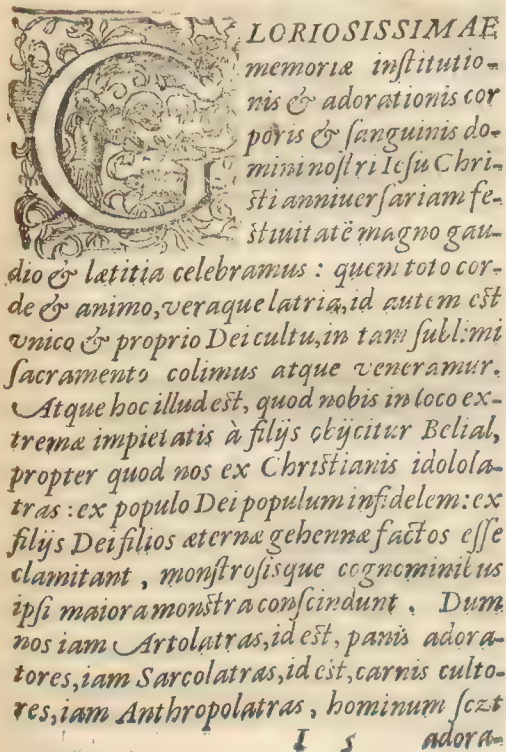 GLORIOSISSIMAE
memoriæ inſtitutio-
nis & adorationis cor
poris & ſanguinis do-
mini noſtri Ieſu Chri-
ſti anniuerſariam fe-
ſtiuitatē magno gau-
dio & lætitia celebramus : quem toto cor-
de & animo, veraque latria, id autem eſt
vnico & proprio Dei cultu, in tam ſublimi
ſacramento colimus atque veneramur.
Atque hoc illud eſt, quod nobis in loco ex-
tremæ impietatis à filijs obijcitur Belial,
propter quod nos ex Chriſtianis idolola-
tras : ex populo Dei populum infidelem : ex
filijs Dei filios æternæ gehennæ factos eſſe
clamitant , monſtroſisque cognominibus
ipſi maiora monſtra conſcindunt . Dum
nos iam Artolatras, id eſt, panis adora-
tores, iam Sarcolatras, id eſt, carnis culto-
res, iam Anthropolatras , hominum ſczt
I 5 adora-